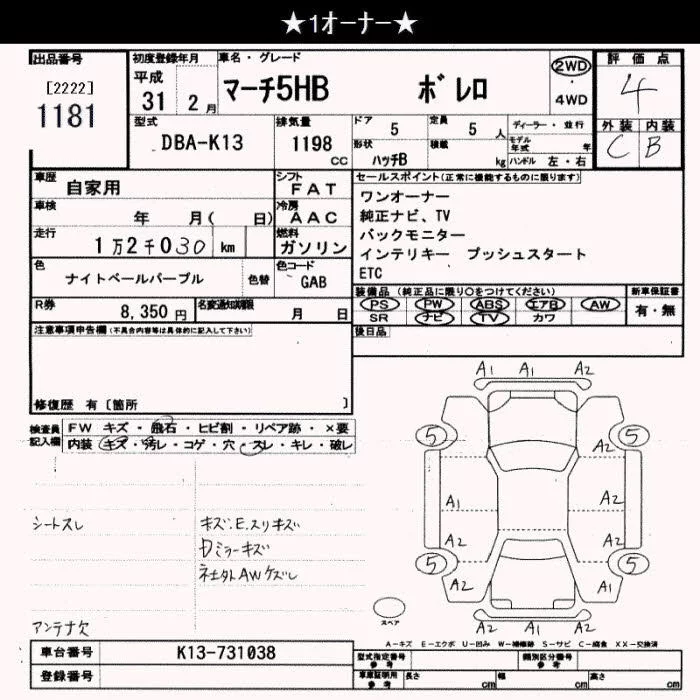 ★1オーナー★
出品番号
[2222]
1181
初度登録年月
平成
31 2月
車名・グレード
マーチ5HB ボレロ
2WD
・
4WD
評価点
4
外装 内装
C B
型式
DBA-K13
排気量
1198
CC
ドア 5
定員 5 人
形状 ハッチB
積載 kg
ディーラー・並行
モデル年式 年
ハンドル 左・右
車歴 自家用
車検 年 月( 日)
走行 1万2千030 km
シフト
FAT
冷房
AAC
燃料
ガソリン
色
ナイトベールパープル
色替
色コード
GAB
R券 8,350円
名変通知期限 月 日
セールスポイント(正常に機能するものに限ります)
ワンオーナー
純正ナビ、TV
バックモニター
インテリキー プッシュスタート
ETC
装備品(純正品に限り○をつけてください)
PS PW ABS エアB AW
SR ナビ TV カワ
新車保証書
有・無
後日品
注意事項申告欄(不具合内容等は具体的に記入して下さい)
修復歴 有〔箇所 〕
検査員
記入欄
FW キズ・飛石・ヒビ割・リペア跡・×要
内装 キズ・汚レ・コゲ・穴・スレ・キレ・破レ
シートスレ
キズ.E.スリキズ
Dミラーキズ
社外AWケズレ
アンテナ欠
A1 A1 A2
5 5
A2
A1 A2
A2 A2
5 5
A2 A1
A2 A2 A2
スペア
A-キズ E-エクボ U-凹み W-補修跡 S-サビ C-腐食 XX-交換済
車台番号 K13-731038
登録番号
型式指定番号
参考
類別区分番号
参考
車庫証明用
参考
長さ cm 幅 cm 高さ cm